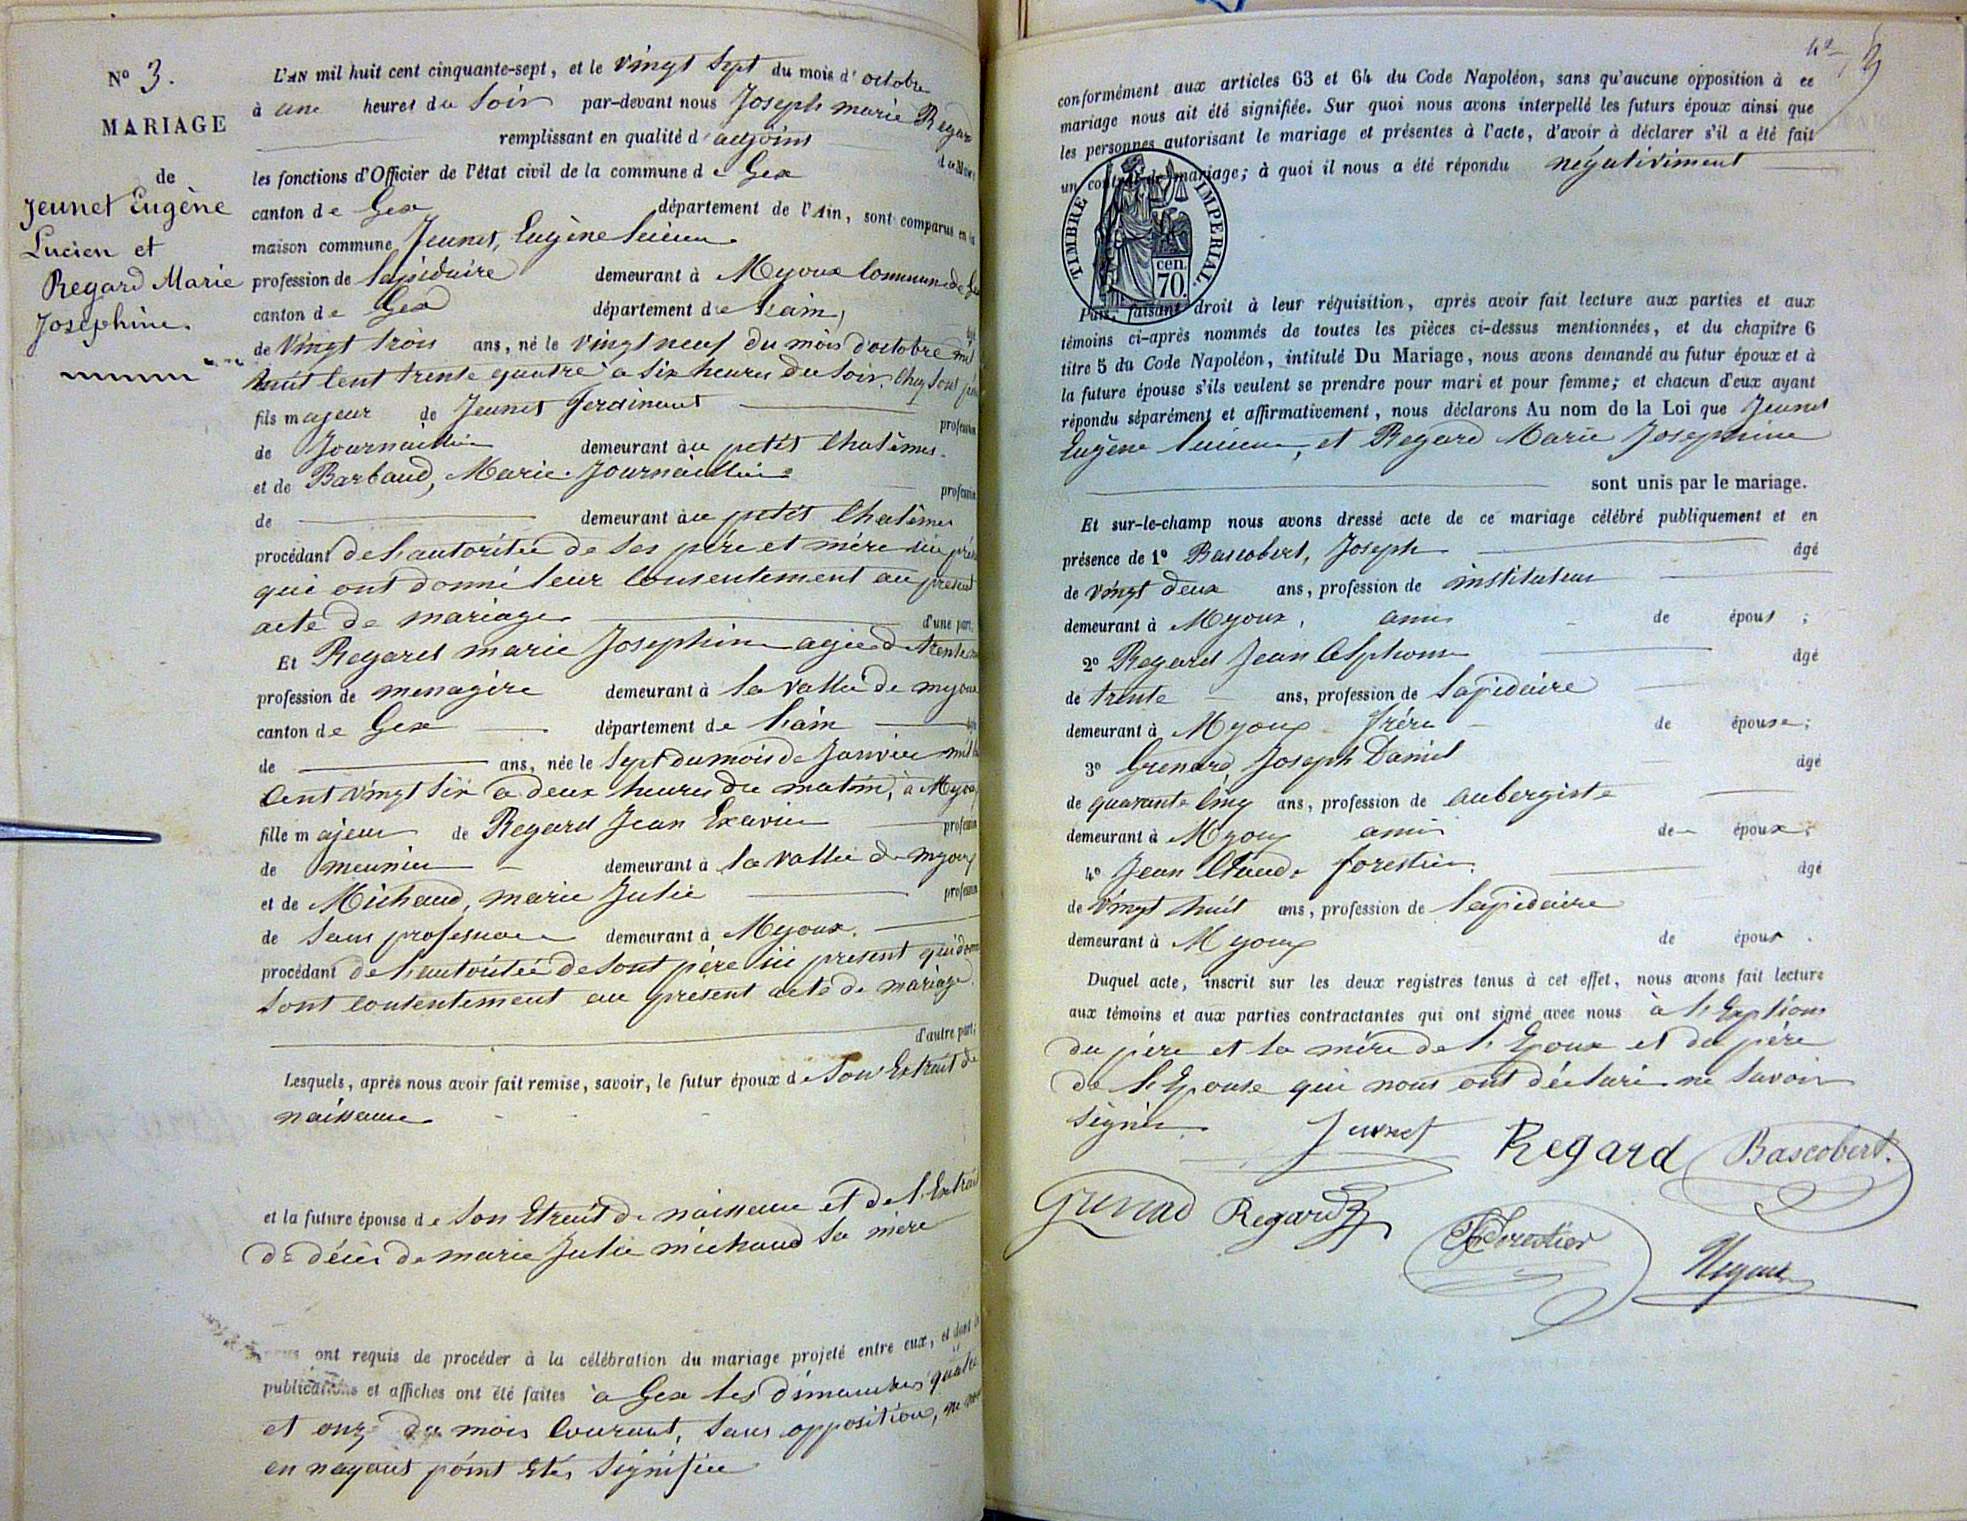 No 3.
MARIAGE
de
Jeunet Eugène
Lucien et
Regard Marie
Josephine.
L'AN mil huit cent cinquante-sept, et le vingt sept du mois d'octobre
à une heures du Soir par-devant nous Joseph marie Regard
remplissant en qualité d'adjoint
les fonctions d'Officier de l'état civil de la commune de Gex
canton de Gex département de l'Ain, sont comparus en la
maison commune Jeunet, Eugène lucien
profession de lapidaire demeurant à Myoux Commune de Gex
canton de Gex département de l'ain,
de vingt trois ans, né le vingt neuf du mois d'octobre mil
huit Cent trente quatre a six heures du Soir,
fils majeur de Jeunet Ferdinant
profession
de Journaillier demeurant àu petit Chatêmes.
et de Barbaud, Marie. Journaillière
profession
de demeurant àu petit Chatêmes
procédant de l'autoritée de Ses père et mère
qui ont donné leur Consentement au présent
acte de mariage d'une part.
Et Regard marie Josephine agée de trente
profession de menagère demeurant à la vallée de myoux
canton de Gex département de l'ain
de ans, née le Sept du mois de Janvier mil
Cent vingt Six a deux heures du matin, à Myoux
fille majeur de Regard Jean Exavier profession
de meunier demeurant à la vallée de myoux
et de Michaud, marie Julie profession
de Sans profession demeurant à Myoux.
procédant de l'autoritée de Sont père ici present qui donne
Sont contentement au present acte de mariage.
d'autre part;
Lesquels, après nous avoir fait remise, savoir, le futur époux de Son Extrait de
naissance
et la future épouse de Son Etrait de naissance et de l'Extrait
de décès de marie Julie michaud Sa mère
nous ont requis de procéder à la célébration du mariage projeté entre eux, et dont les
publications et affiches ont été faites à Gex les dimanches quatre
et onze du mois Courant, Sans opposition,
en nayant point Etés Signifiée
conformément aux articles 63 et 64 du Code Napoléon, sans qu'aucune opposition à ce
mariage nous ait été signifiée. Sur quoi nous avons interpellé les futurs époux ainsi que
les personnes autorisant le mariage et présentes à l'acte, d'avoir à déclarer s'il a été fait
un contrat de mariage; à quoi il nous a été répondu négativiment
TIMBRE IMPERIAL
70 cen.
Puis, faisant droit à leur réquisition, après avoir fait lecture aux parties et aux
témoins ci-après nommés de toutes les pièces ci-dessus mentionnées, et du chapitre 6
titre 5 du Code Napoléon, intitulé Du Mariage, nous avons demandé au futur époux et à
la future épouse s'ils veulent se prendre pour mari et pour femme; et chacun d'eux ayant
répondu séparément et affirmativement, nous déclarons Au nom de la Loi que Jeunet
Eugène lucien, et Regard Marie Josephine
sont unis par le mariage.
Et sur-le-champ nous avons dressé acte de ce mariage célébré publiquement et en
présence de 1o Bascobert, Joseph âgé
de vingt deux ans, profession de instituteur
demeurant à Myoux, amis de épous ;
2o Regard Jean Alphonse âgé
de trente ans, profession de lapidaire
demeurant à Myoux frère de épouse;
3o Grenard Joseph Daniel âgé
de quarante Cinq ans, profession de aubergiste
demeurant à Myoux ami de époux;
4o Jean Claude forestier. âgé
de vingt huit ans, profession de lapidaire
demeurant à Myoux de époux .
Duquel acte, inscrit sur les deux registres tenus à cet effet, nous avons fait lecture
aux témoins et aux parties contractantes qui ont signé avec nous à l'Exptions
du père et la mère de l'Epoux et du père
de l'Epouse qui nous ont déclaré ne Savoir
signer.
Jeunet Regard Bascobert.
Grenard Regard Forestier Regard